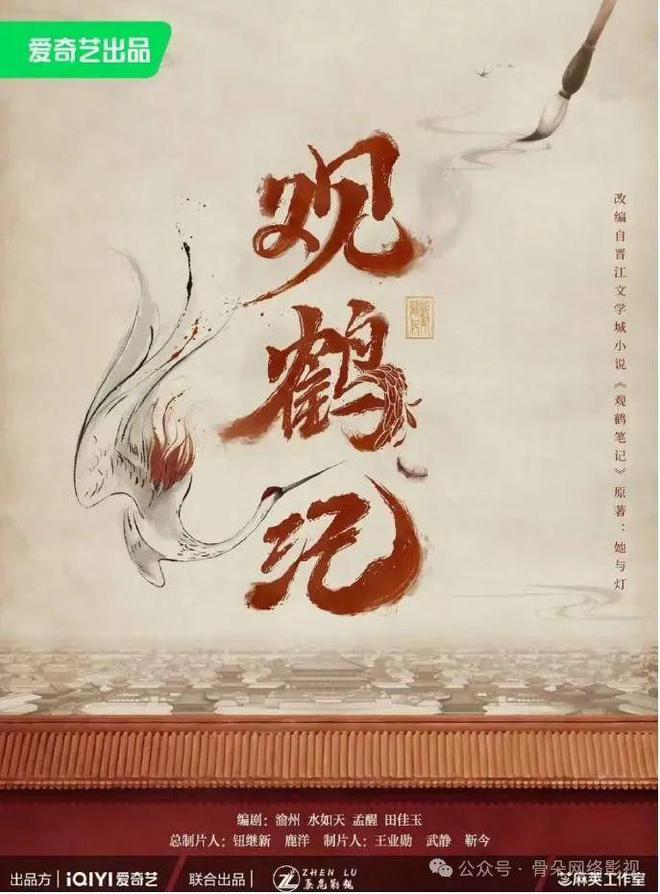 爱奇艺出品
观鹤记
改编自晋江文学城小说《观鹤笔记》原著：她与灯
编剧：渝州 水如天 孟醒 田佳玉
总制片人：钮继新 鹿洋 制片人：王业勋 武静 靳今
出品方 iQIYI 爱奇艺 联合出品 ZHEN LU 芝麻荚工作室
公众号·骨朵网络影视